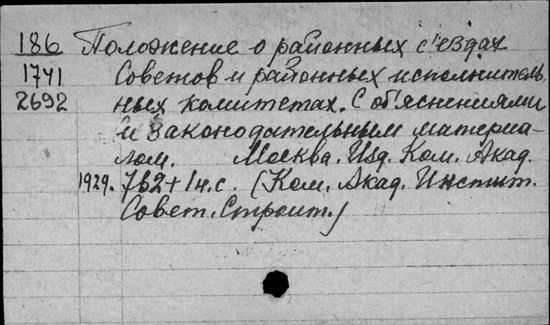 186 Положение о районных с'ездах
1741 Советов и районных исполнитель
2692 ных комитетах. С об'яснениями
и законодательным материа-
лом. Москва. Изд. Ком. Акад.
1929. 762+1н.с. (Ком. Акад. Инстит.
Совет. Строит.)